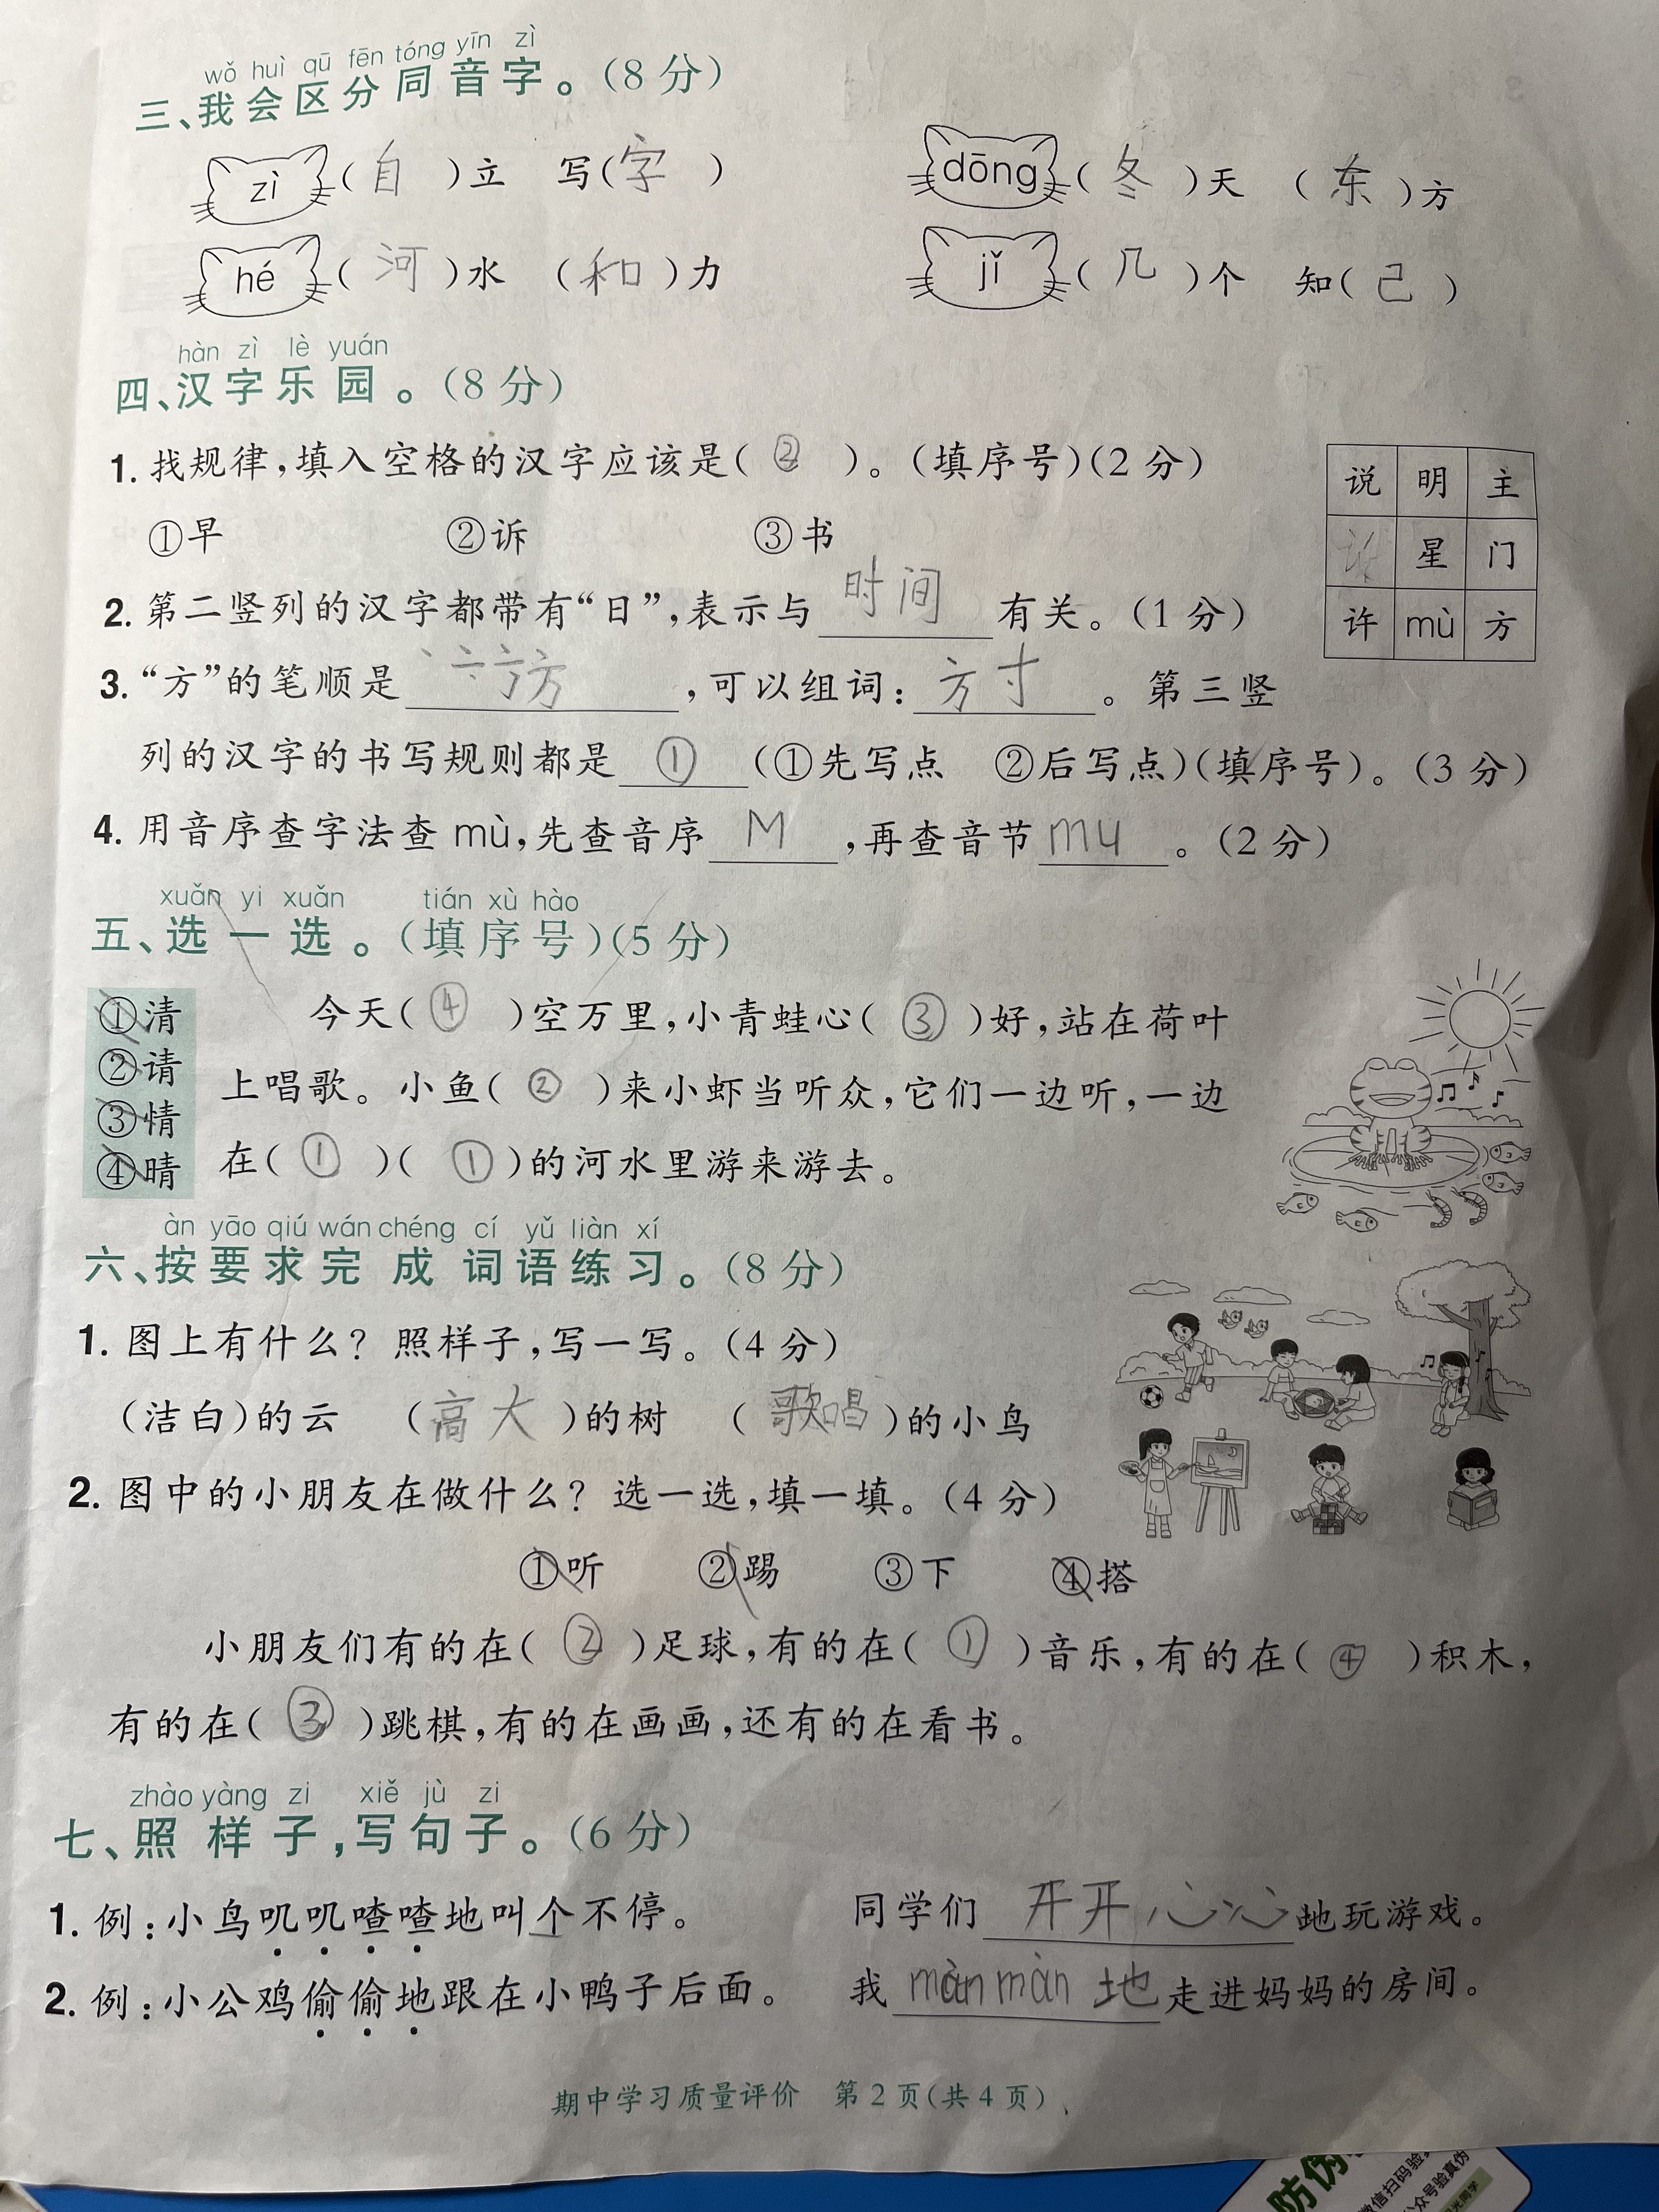 wǒ huì qū fēn tóng yīn zì
三、我会区分同音字。(8 分)
zì (自)立 写(字) dōng (冬)天 (东)方
hé (河)水 (和)力 jǐ (几)个 知(己)
hàn zì lè yuán
四、汉字乐园。(8 分)
1. 找规律,填入空格的汉字应该是(②)。(填序号)(2 分)
①早 ②诉 ③书
说 明 主
诉 星 门
许 mù 方
2. 第二竖列的汉字都带有“日”,表示与时间有关。(1 分)
3. “方”的笔顺是丶亠亍方,可以组词:方寸。第三竖
列的汉字的书写规则都是①(①先写点 ②后写点)(填序号)。(3 分)
4. 用音序查字法查 mù,先查音序M,再查音节mu。(2 分)
xuǎn yi xuǎn tián xù hào
五、选一选。(填序号)(5 分)
①清
②请
③情
④晴
今天(④)空万里,小青蛙心(③)好,站在荷叶
上唱歌。小鱼(②)来小虾当听众,它们一边听,一边
在(①)(①)的河水里游来游去。
àn yāo qiú wán chéng cí yǔ liàn xí
六、按要求完成词语练习。(8 分)
1. 图上有什么?照样子,写一写。(4 分)
(洁白)的云 (高大)的树 (歌唱)的小鸟
2. 图中的小朋友在做什么?选一选,填一填。(4 分)
①听 ②踢 ③下 ④搭
小朋友们有的在(②)足球,有的在(①)音乐,有的在(④)积木,
有的在(③)跳棋,有的在画画,还有的在看书。
zhào yàng zi xiě jù zi
七、照样子,写句子。(6 分)
1. 例:小鸟叽叽喳喳地叫个不停。 同学们开开心心地玩游戏。
2. 例:小公鸡偷偷地跟在小鸭子后面。 我màn màn地走进妈妈的房间。
期中学习质量评价 第 2 页(共 4 页)
防伪
微信扫码验
公众号验真伪